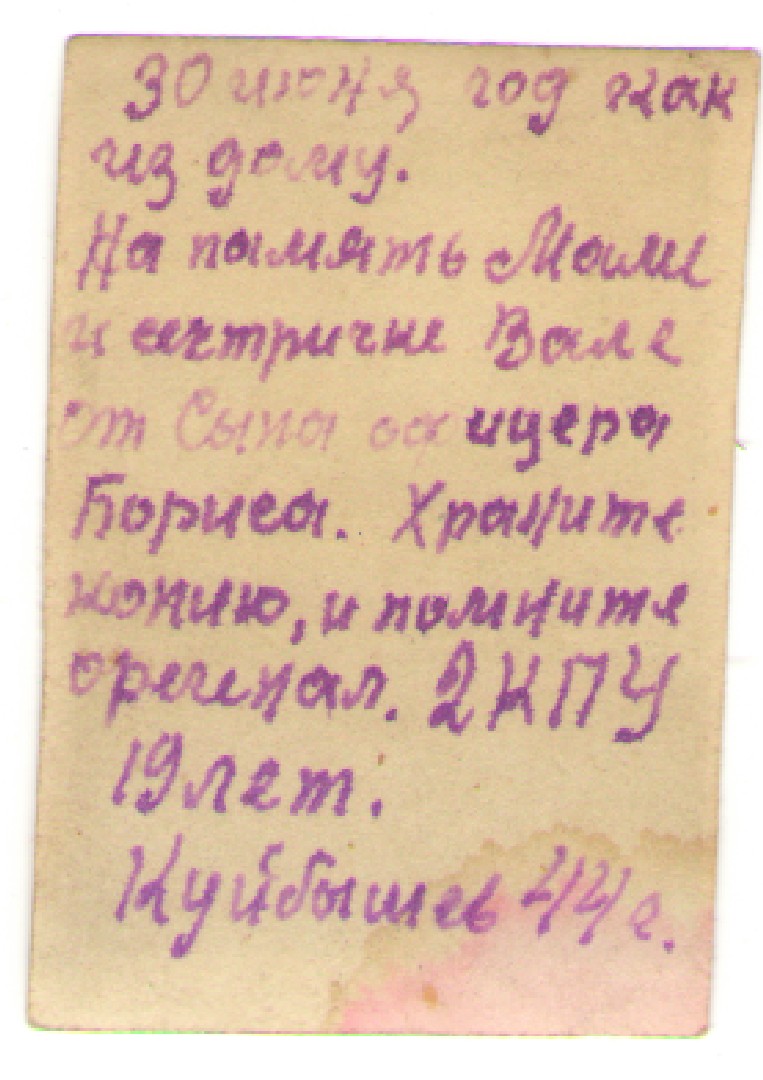 30 июня год как
из дому.
На память Маме
и сестричке Вале
от Сына офицера
Бориса. Храните
копию, и помните
орегенал. 2 КПУ
19 лет.
Куйбышев 44 г.